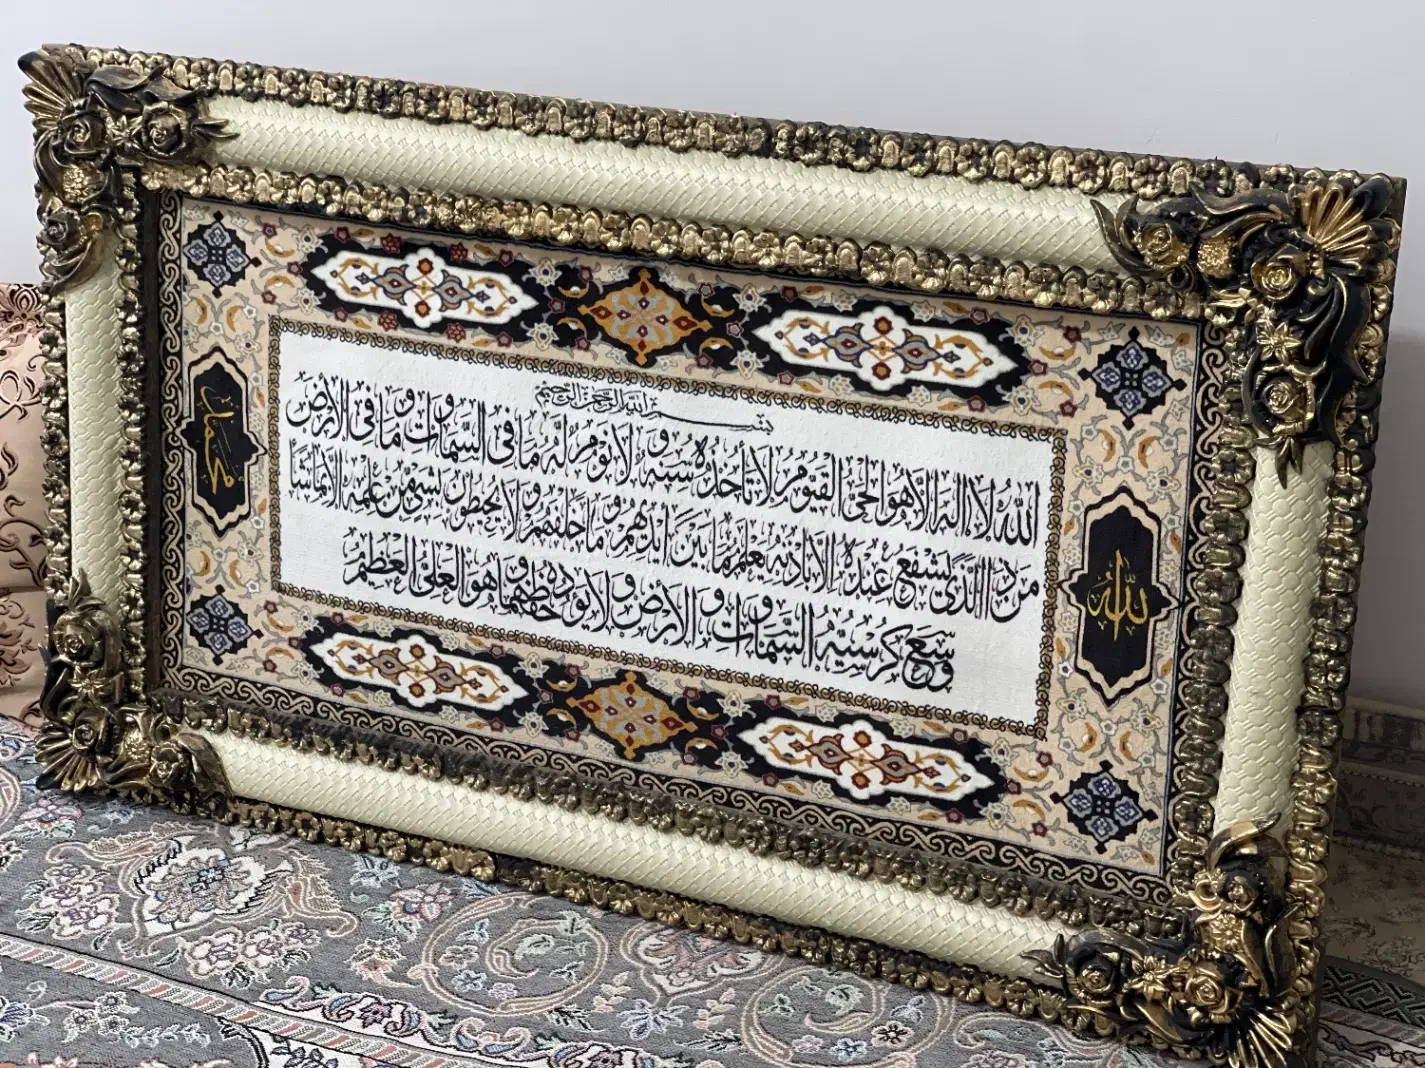 بسم الله الرحمن الرحيم
الله لا اله الا هو الحي القيوم لا تأخذه سنة و لا نوم له ما في السموات و ما في الارض
من ذا الذي يشفع عنده الا باذنه يعلم ما بين ايديهم و ما خلفهم و لا يحيطون بشيء من علمه الا بما شا
وسع كرسيه السموات و الارض و لا يوده حفظهما و هو العلي العظيم
الله
محمد